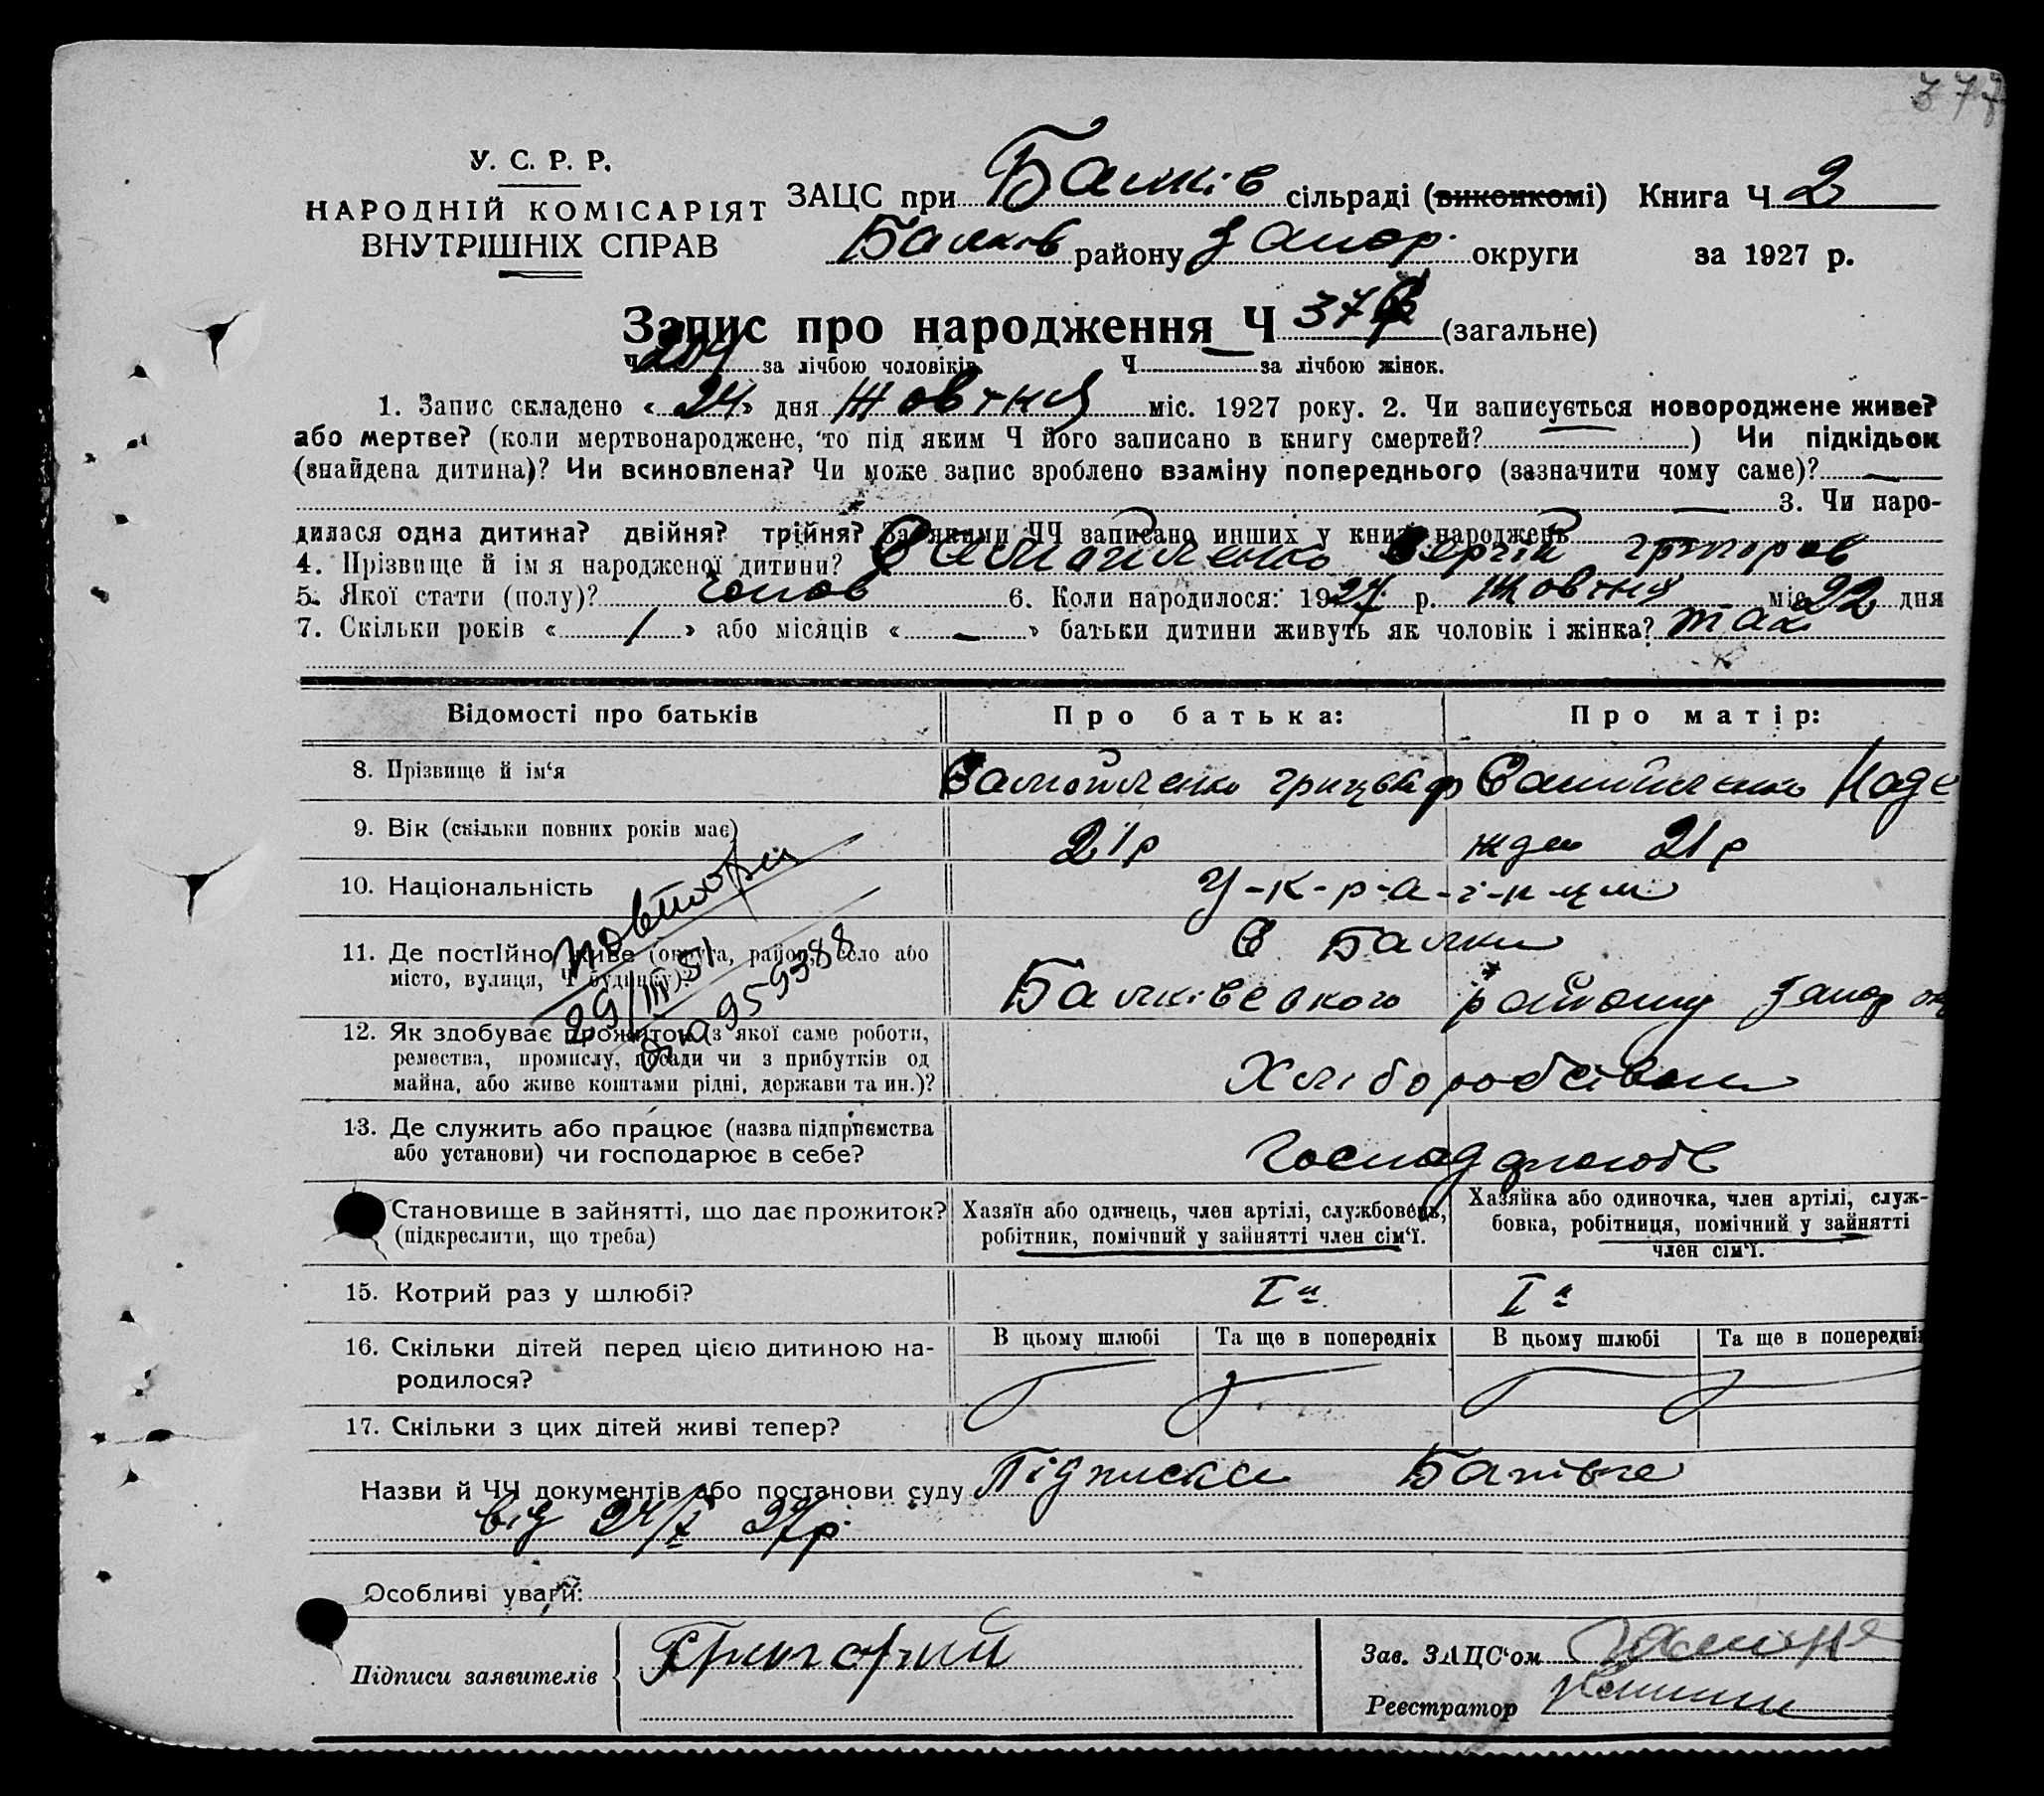 377
У. С. Р. Р.
НАРОДНІЙ КОМІСАРІЯТ
ВНУТРІШНІХ СПРАВ
ЗАЦС при Балків сільраді (виконкомі) Книга Ч 2
Балків району Запор. округи за 1927 р.
Запис про народження Ч 377 (загальне)
Ч 204 за лічбою чоловіків Ч за лічбою жінок.
1. Запис складено « 24 » дня Жовтня міс. 1927 року. 2. Чи записується новороджене живе?
або мертве? (коли мертвонароджене, то під яким Ч його записано в книгу смертей? ) Чи підкідьок
(знайдена дитина)? Чи всиновлена? Чи може запис зроблено взаміну попереднього (зазначити чому саме)? —
— 3. Чи наро-
дилася одна дитина? двійня? трійня? За якими ЧЧ записано инших у книзі народжень
4. Прізвище й ім я народженої дитини? Самойленко Сергій Григоров
5. Якої стати (полу)? чолов 6. Коли народилося: 1927 р. Жовтня міс 22 дня
7. Скільки років « 1 » або місяців « — » батьки дитини живуть як чоловік і жінка? так
Відомості про батьків Про батька: Про матір:
8. Прізвище й ім‘я Самойленко Григорій Самойленко Наде
9. Вік (скільки повних років має) 21р жда 21р
10. Національність У-к-р-а-ї-н-ці
11. Де постійно живе (округа, район, село або С Балки
місто, вулиця, Ч будинку)? Балківського району Запор ок
Повторн
29/III 51
959388
12. Як здобуває прожиток (з якої саме роботи,
ремества, промислу, посади чи з прибутків од
майна, або живе коштами рідні, держави та ин.)? Хліборобством
13. Де служить або працює (назва підприємства
або установи) чи господарює в себе?
Становище в зайнятті, що дає прожиток? Хазяїн або одинець, член артілі, службовець, Хазяйка або одиночка, член артілі, служ-
(підкреслити, що треба) робітник, помічний у зайнятті член сім‘ї. бовка, робітниця, помічний у зайнятті
член сім‘ї.
15. Котрий раз у шлюбі? Iй Iй
16. Скільки дітей перед цією дитиною на- В цьому шлюбі Та ще в попередніх В цьому шлюбі Та ще в попередніх
родилося?
17. Скільки з цих дітей живі тепер?
Назви й ЧЧ документів або постанови суду Підписка Батьків
від 24/X 27р.
Особливі уваги:
Підписи заявителів Григорий
Зав. ЗАЦС‘ом
Реєстратор